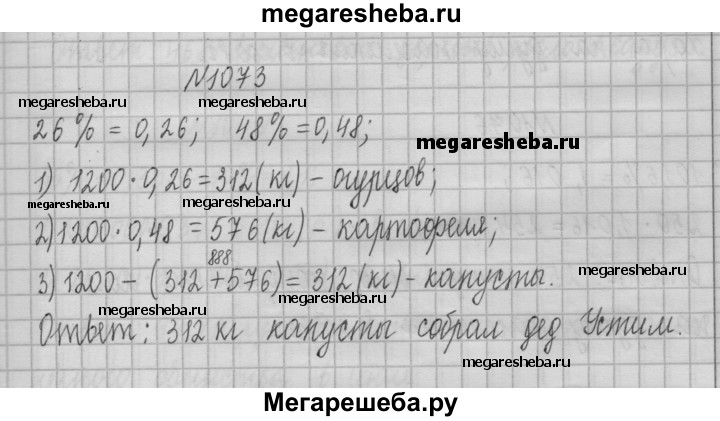 megaresheba.ru
№1073
megaresheba.ru megaresheba.ru megaresheba.ru
26% = 0,26; 48% = 0,48;
megaresheba.ru
1) 1200 · 0,26 = 312 (кг) - огурцов;
megaresheba.ru megaresheba.ru megaresheba.ru
2) 1200 · 0,48 = 576 (кг) - картофеля;
888
3) 1200 - (312 + 576) = 312 (кг) - капусты.
megaresheba.ru
Ответ: 312 кг капусты собрал дед Устим.
megaresheba.ru megaresheba.ru megaresheba.ru
Мегарешеба.ру